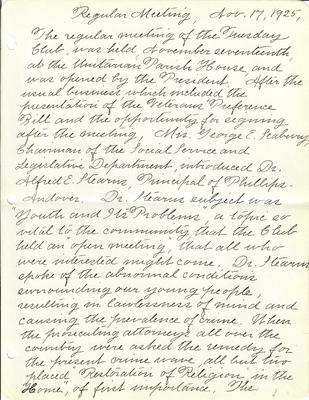 Regular Meeting, Nov. 17, 1925,
The regular meeting of the Tuesday
Club, was held November seventeenth,
at the Unitarian Parish House, and
was opened by the President. After the
usual business which included the
presentation of the Veterans Preference
Bill and the opportunity for signing
after the meeting, Mrs. George E.
Chairman of the Social Service and
Legislative Department, introduced Dr.
Alfred E. Stearns, Principal of Phillips-
Andover. Dr. Stearns subject was
"Youth and Its Problems, a topic so
vital to the community that the Club
held an open meeting, that all who
were interested might come. Dr. Stearns
spoke of the abnormal conditions
surrounding our young people,
resulting in lawlessness of mind and
causing the prevalence of crime. When
the prosecuting attorneys all over the
country were asked the remedy for
the present crime wave, all but two
placed "Restoration of Religion in the
Home", of first importance. The